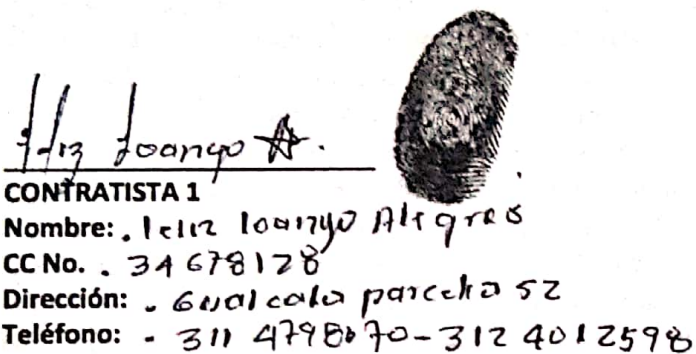 Feliz Loango A.
CONTRATISTA 1
Nombre: . Feliz Loango Alegria
CC No. . 34678128
Dirección: . Gualcala parcela 52
Teléfono: - 311 4798070-312 4012598